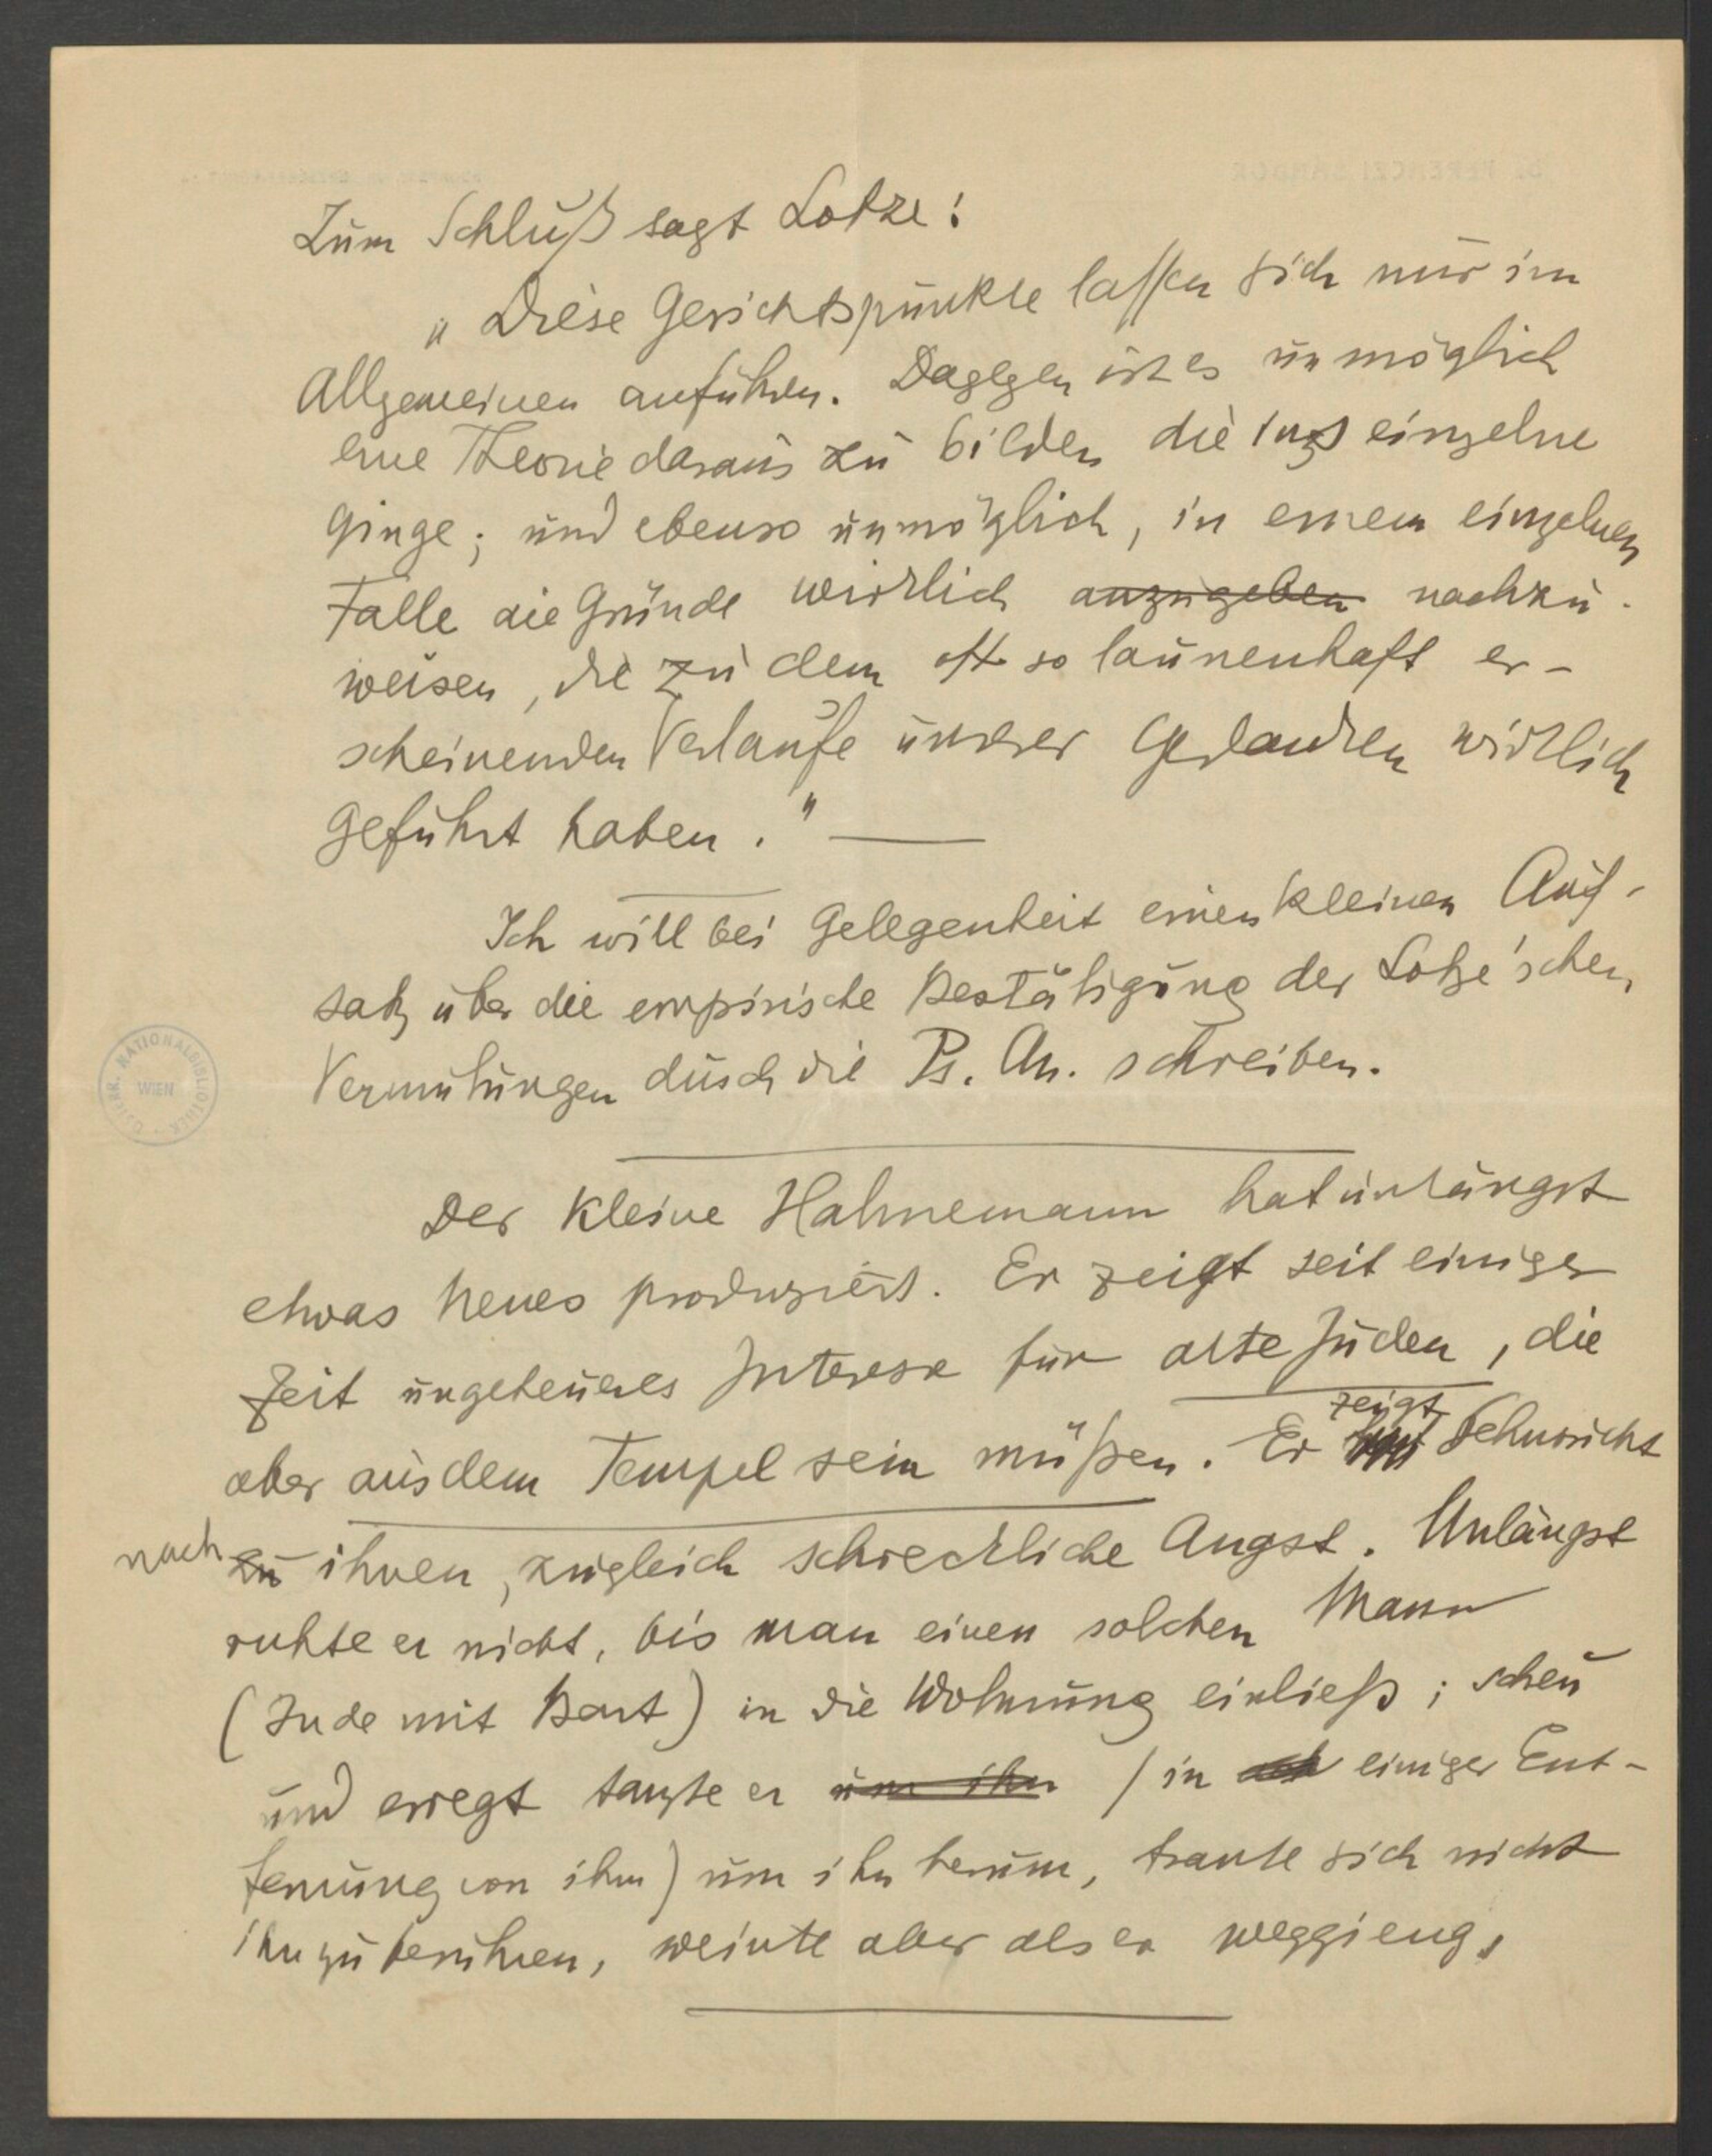 Zum Schluß sagt Lotze:
„Diese Gesichtspunkte lassen sich nur im
Allgemeinen anführen. Dagegen ist es unmöglich
eine Theorie daraus zu bilden die ins einzelne
ginge; und ebenso unmöglich, in einem einzelnen
Falle die Gründe wirklich anzugeben nachzu-
weisen, die zu dem oft so launenhaft er-
scheinenden Verlaufe unserer Gedanken wirklich
geführt haben." —
Ich will bei Gelegenheit einen kleinen Auf-
satz über die empirische Bestätigung der Lotze'schen
Vermutungen durch die Ps. An. schreiben.
Der kleine Hahnemann hat unlängst
etwas neues produziert. Er zeigt seit einiger
Zeit ungeheueres Interesse für alte Juden, die
aber aus dem Tempel sein müßen. Er zeigt Sehnsucht
nach zu ihnen, zugleich schreckliche Angst. Unlängst
ruhte er nicht, bis man einen solchen Mann
(Jude mit Bart) in die Wohnung einließ; scheu
und erregt tanzte er um ihn (in einiger Ent-
fernung von ihm) um ihn herum, traute sich nicht
ihn zu berühren, weinte aber als er weggieng.
ÖSTERR. NATIONALBIBLIOTHEK
WIEN